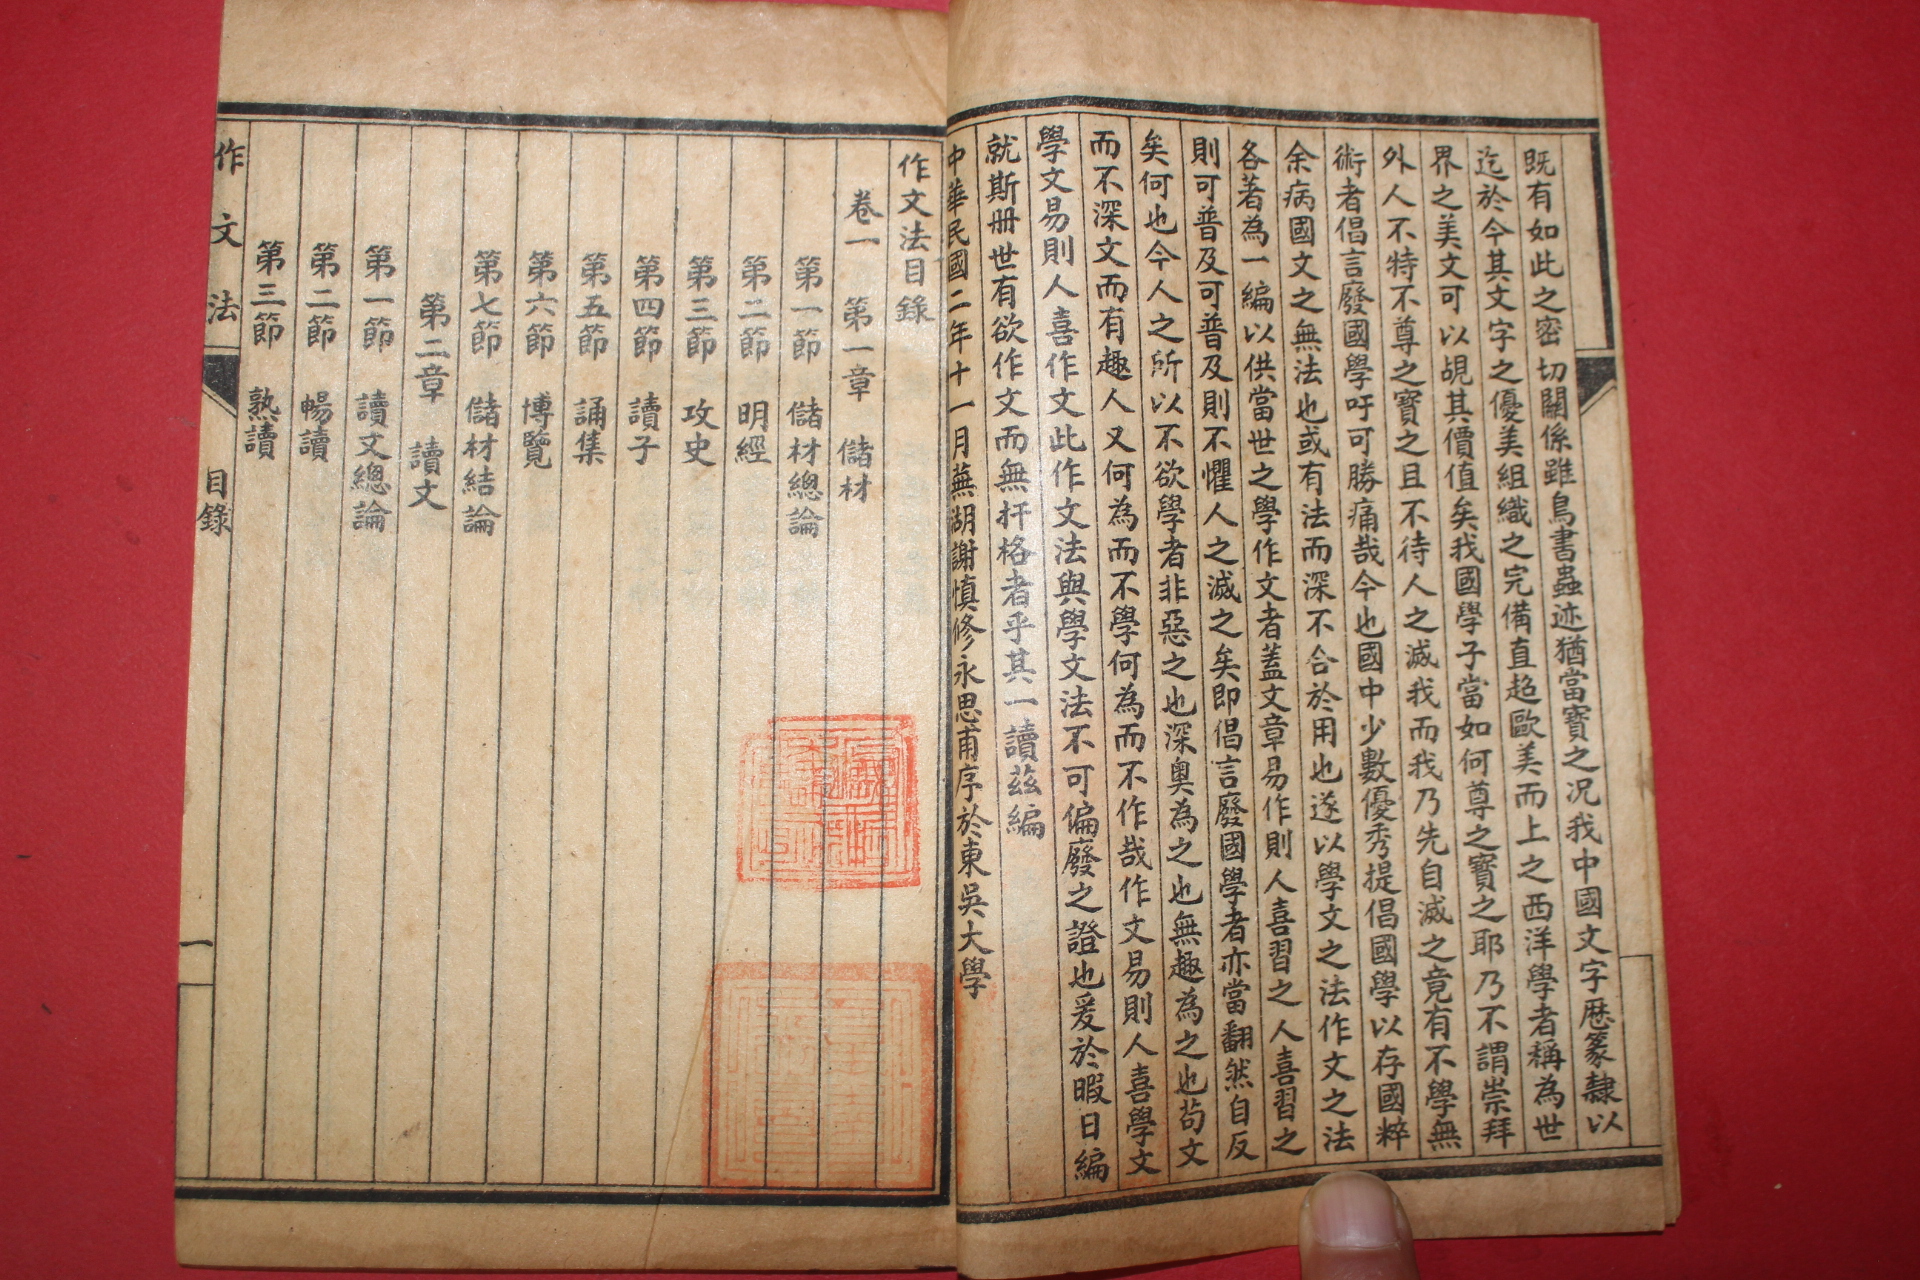 既有如此之密切關係雖鳥書蟲迹猶當寶之况我中國文字歷篆隸以
迄於今其文字之優美組織之完備直超歐美而上之西洋學者稱為世
界之美文可以覘其價值矣我國學子當如何尊之寶之耶乃不謂崇拜
外人不特不尊之寶之且不待人之滅我而我乃先自滅之竟有不學無
術者倡言廢國學吁可勝痛哉今也國中少數優秀提倡國學以存國粹
余病國文之無法也或有法而深不合於用也遂以學文之法作文之法
各著為一編以供當世之學作文者蓋文章易作則人喜習之人喜習之
則可普及可普及則不懼人之滅之矣即倡言廢國學者亦當翻然自反
矣何也今人之所以不欲學者非惡之也深奧為之也無趣為之也茍文
而不深文而有趣人又何為而不學何為而不作哉作文易則人喜學文
學文易則人喜作文此作文法與學文法不可偏廢之證也爰於暇日編
就斯册世有欲作文而無扞格者乎其一讀茲編
中華民國二年十一月蕪湖謝慎修永思甫序於東吳大學
作文法目錄
卷一 第一章 儲材
第一節 儲材總論
第二節 明經
第三節 攻史
第四節 讀子
第五節 誦集
第六節 博覽
第七節 儲材結論
第二章 讀文
第一節 讀文總論
第二節 暢讀
第三節 熟讀
作文法 目錄 一